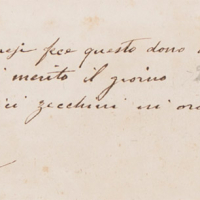 per questo dono
merito il giorno
zecchini in oro